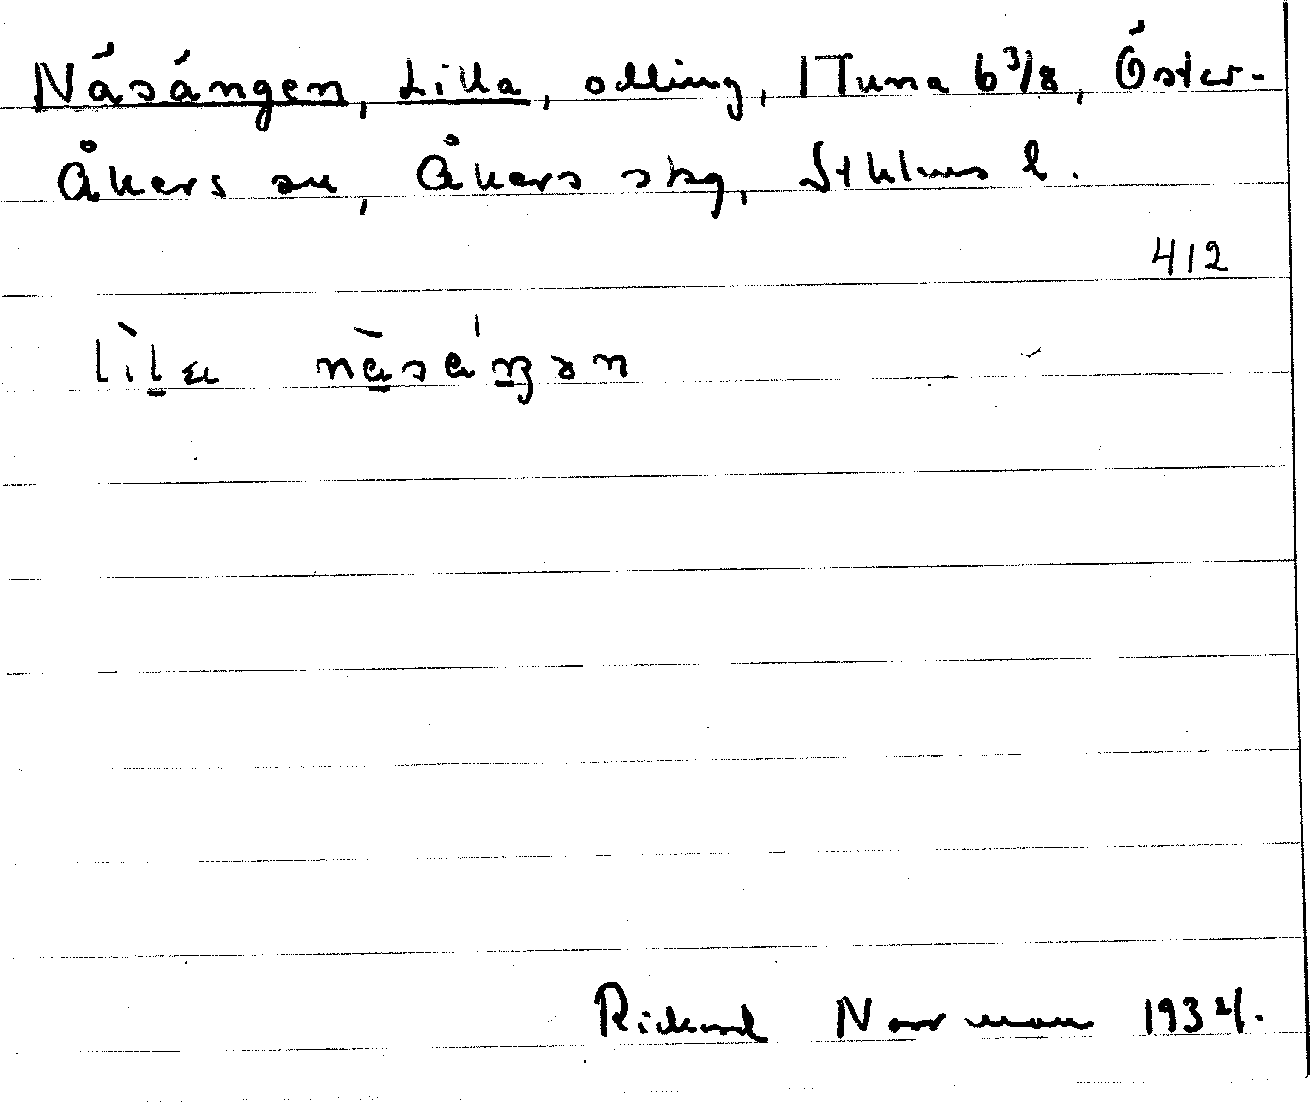 Näsängen, Lilla, odling, 1 Tuna 6 3/8, Öster-
Åkers sn, Åkers skg, Sthlms l.
412
Rickard Norrman 1934.